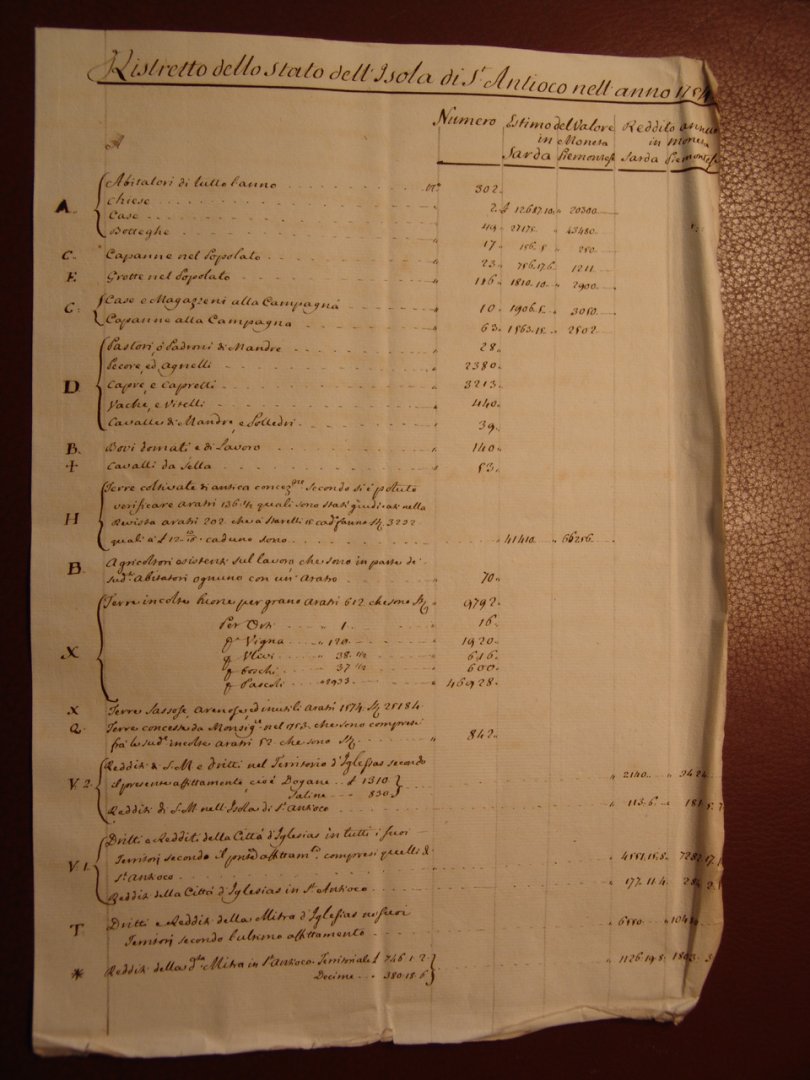 Ristretto dello stato dell'Isola di St. Antioco nell'anno 1754
Numero Estimo del Valore in Moneta Sarda Piemontese Reddito annuo in moneta Sarda Piemontese
A
A. Abitatori di tutto l'anno nº 302.
Chiese 2. £ 12687.10. 20300
Case 419. 27175. 43480.
Botteghe 17. 156.5. 250.
C. Capanne nel Popolato 23. 756.17.6. 1211
E. Grotte nel Popolato 116. 1810.10. 2900.
C. Case e Magazzeni alla Campagna 10. 1906.5. 3050.
Capanne alla Campagna 63. 1563.15. 2502.
D. Pastori, ò Padroni di Mandre 28.
Pecore, ed Agnelli 2380.
Capre, e Capretti 3213.
Vache, e Vitelli 440.
Cavalle di Mandra, e Polledri 39.
B. Bovi domati e di Lavoro 140.
+ Cavalli da Sella 53.
H Terre coltivate di antica concezne secondo si è potuto
verificare aratri 136.½ quali sono stati giudicati nella
Revista aratri 202. che a starelli 16 cadº fanno 3232
quali a £ 12.10.16. caduno sono 41410. 66256.
B. Agricoltori esistenti sul lavoro che sono in parte de'
sudti Abitatori ognuno con un' Aratro 70.
X Terre incolte buone per grano aratri 612. che sono 9792.
Per Orti 1. 16.
pr Vigna 120. 1920.
pr Ulivi 38.½ 616.
pr boschi 37.½ 600.
pr Pascoli 2933 46928.
X Terre Sassose, Arenose, ed inutili aratri 1574. 25184.
Q. Terre concesse da Monsigre nel 1753. che sono comprese
frà le sude incolte aratri 52. che sono 842.
V.2. Redditi di S.M. e dritti nel Territorio d'Iglesias secondo
il presente affittamento, cioè Dogane £ 1310
Saline 830 2140. 3424.
Redditi di S.M. nell'Isola di St. Antioco 113.6. 181.
V.1. Dritti e Redditi della Città d'Iglesias in tutti i suoi
Territorj secondo il affittamto compresi quelli di
St. Antioco 4551.15.8. 7282.
Redditi della Città d'Iglesias in St. Antioco 177.11.4. 284
T. Dritti e Redditi della Mitra d'Iglesias ne' suoi
Territorj secondo l'ultimo affittamento 6550.
* Redditi della dta Mitra in St. Antioco. Territoriale £ 746.1.2.
Decime 380.18.6 1126.19.8. 1803.